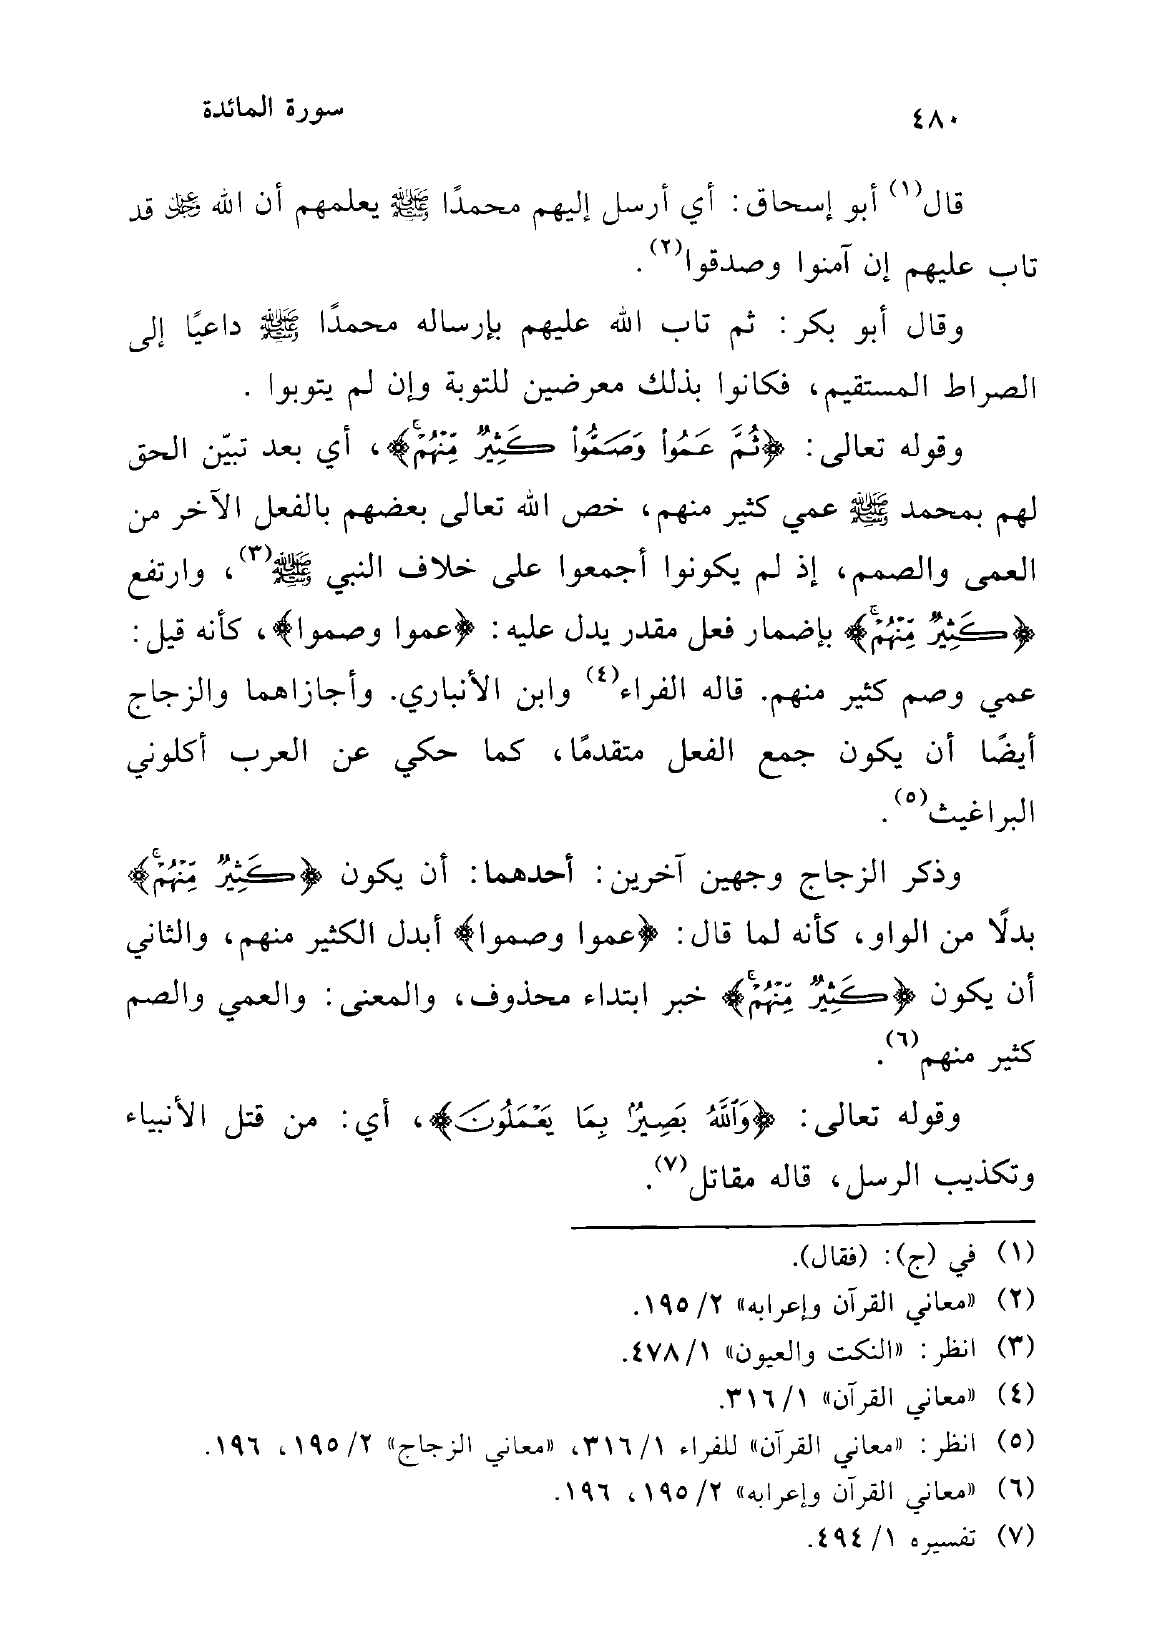 ٤٨٠ سورة المائدة
قال(١) أبو إسحاق: أي أرسل إليهم محمدًا ﷺ يعلمهم أن الله ﷿ قد
تاب عليهم إن آمنوا وصدقوا(٢).
وقال أبو بكر: ثم تاب الله عليهم بإرساله محمدًا ﷺ داعيًا إلى
الصراط المستقيم، فكانوا بذلك معرضين للتوبة وإن لم يتوبوا .
وقوله تعالى: ﴿ثُمَّ عَمُواْ وَصَمُّواْ كَثِيرٌ مِّنْهُمْۚ﴾، أي بعد تبيّن الحق
لهم بمحمد ﷺ عمي كثير منهم، خص الله تعالى بعضهم بالفعل الآخر من
العمى والصمم، إذ لم يكونوا أجمعوا على خلاف النبي ﷺ(٣)، وارتفع
﴿كَثِيرٌ مِّنْهُمْۚ﴾ بإضمار فعل مقدر يدل عليه: ﴿عموا وصموا﴾، كأنه قيل:
عمي وصم كثير منهم. قاله الفراء(٤) وابن الأنباري. وأجازاهما والزجاج
أيضًا أن يكون جمع الفعل متقدمًا، كما حكي عن العرب أكلوني
البراغيث(٥).
وذكر الزجاج وجهين آخرين: أحدهما: أن يكون ﴿كَثِيرٌ مِّنْهُمْۚ﴾
بدلًا من الواو، كأنه لما قال: ﴿عموا وصموا﴾ أبدل الكثير منهم، والثاني
أن يكون ﴿كَثِيرٌ مِّنْهُمْۚ﴾ خبر ابتداء محذوف، والمعنى: والعمي والصم
كثير منهم(٦).
وقوله تعالى: ﴿وَٱللَّهُ بَصِيرٌۢ بِمَا يَعْمَلُونَ﴾، أي: من قتل الأنبياء
وتكذيب الرسل، قاله مقاتل(٧).
(١) في (ج): (فقال).
(٢) «معاني القرآن وإعرابه» ٢/ ١٩٥.
(٣) انظر: «النكت والعيون» ١/ ٤٧٨.
(٤) «معاني القرآن» ١/ ٣١٦.
(٥) انظر: «معاني القرآن» للفراء ١/ ٣١٦، «معاني الزجاج» ٢/ ١٩٥، ١٩٦.
(٦) «معاني القرآن وإعرابه» ٢/ ١٩٥، ١٩٦.
(٧) تفسيره ١/ ٤٩٤.